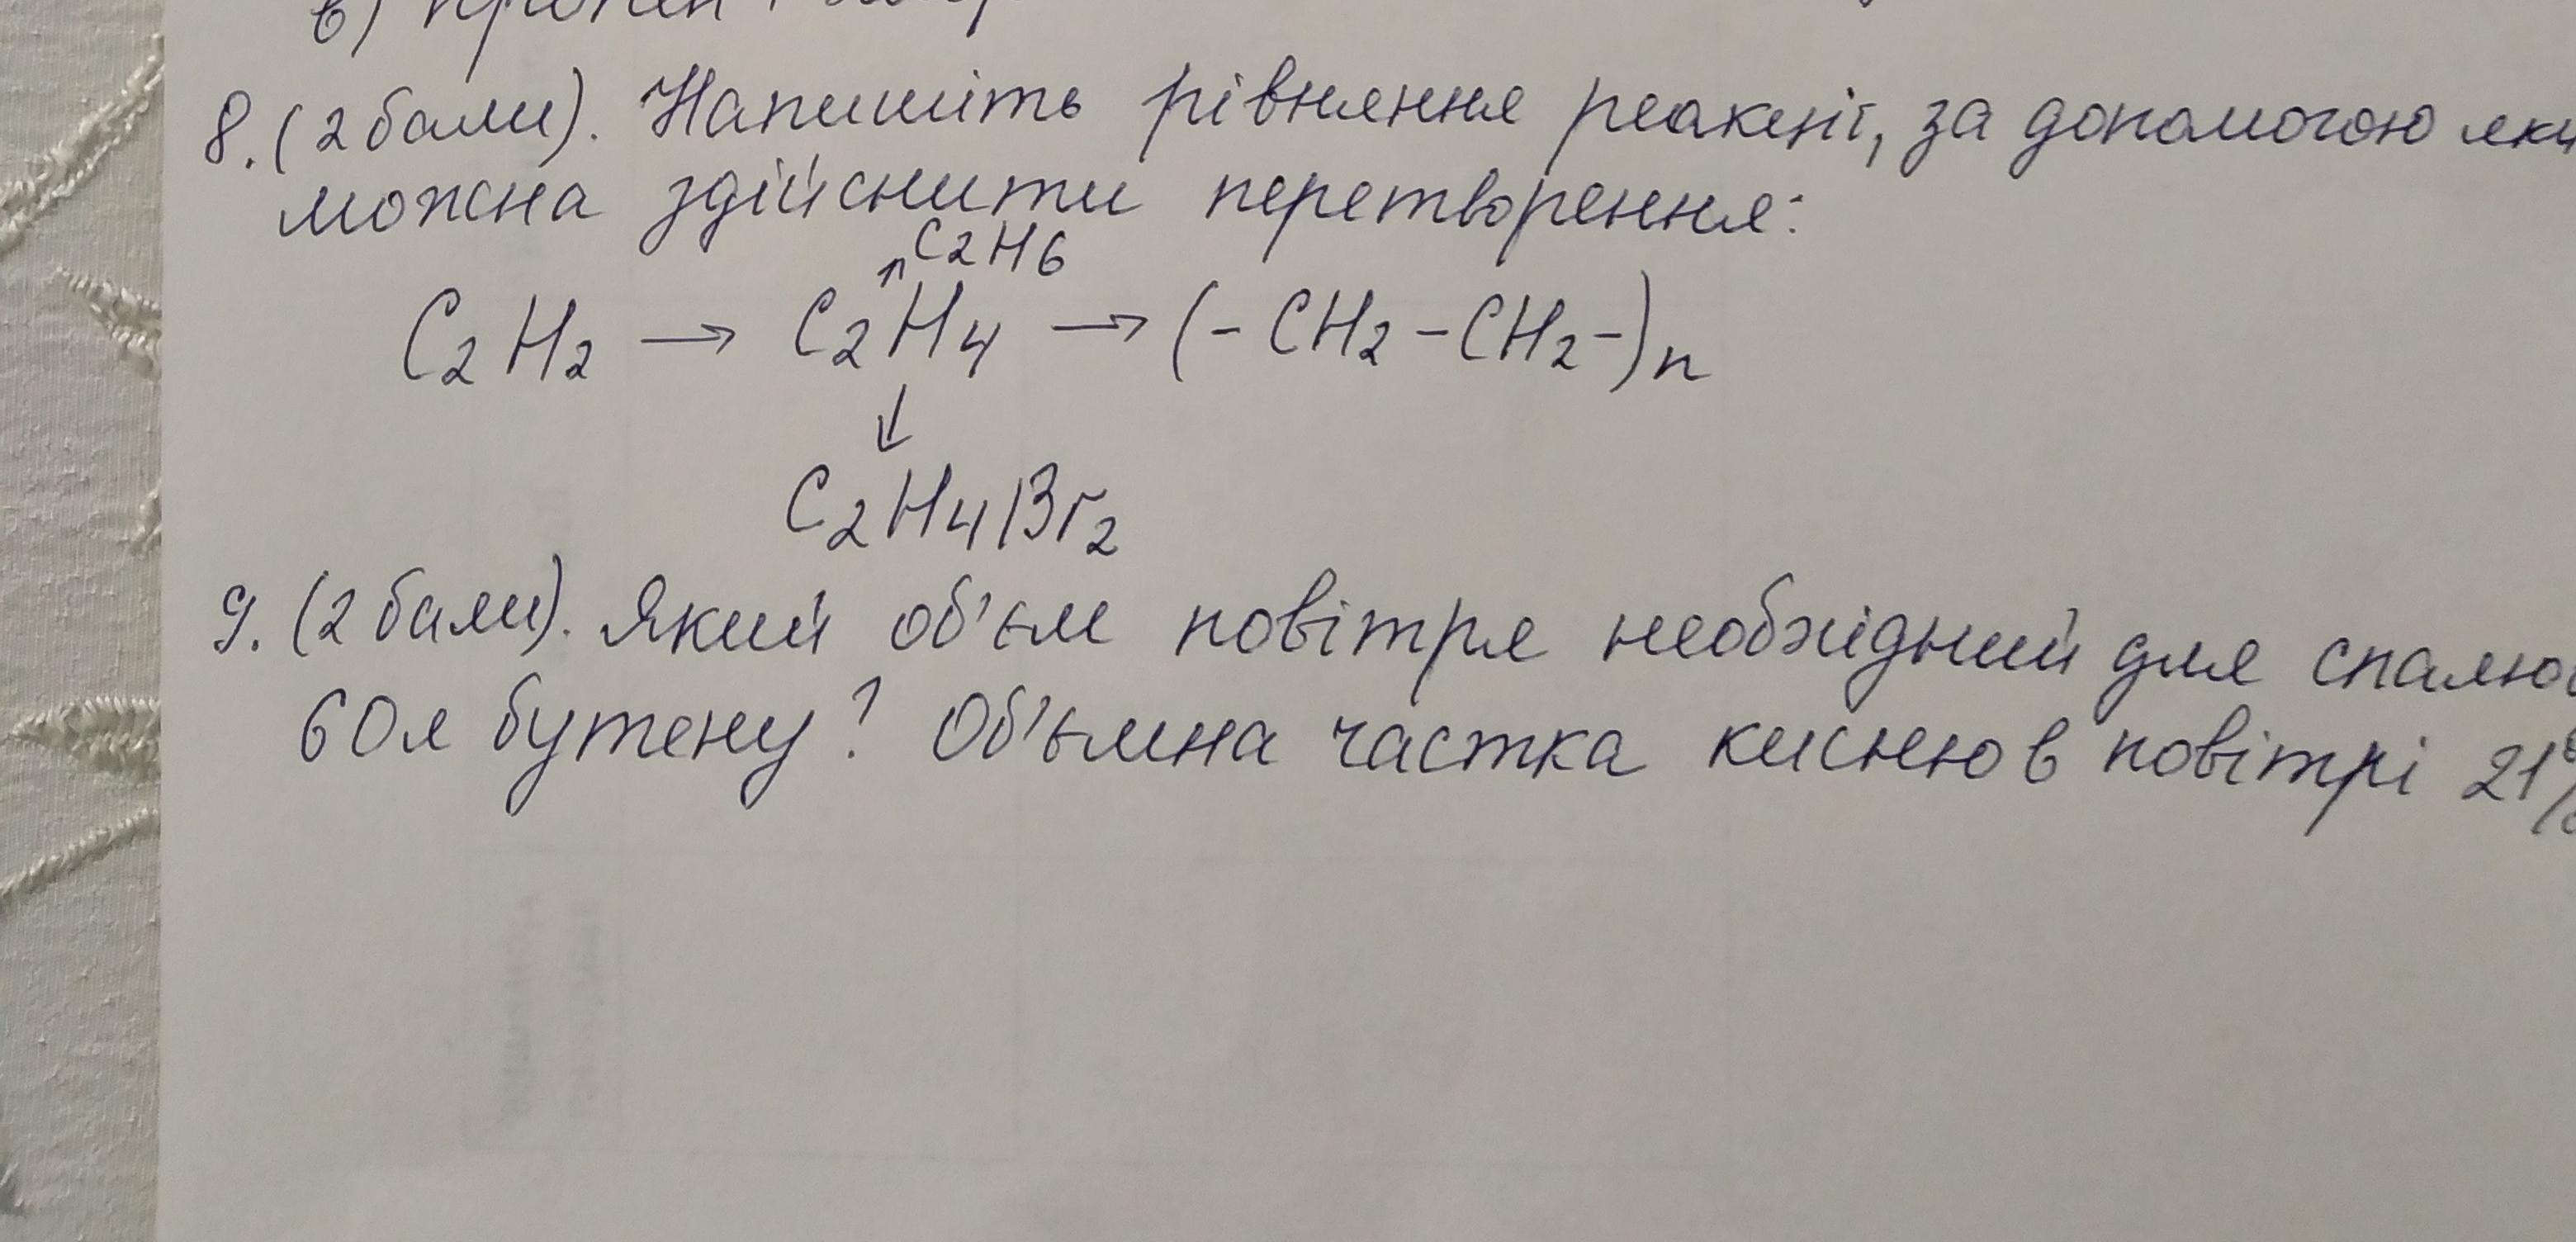 в) пропен
8. (2 бали). Напишіть рівняння реакції, за допомогою яки
можна здійснити перетворення:
C2H6
↑
C2H2 → C2H4 → (- CH2 - CH2 -)n
↓
C2H4Br2
9. (2 бали). Який об'єм повітря необхідний для спалю
60л бутену? Об'ємна частка кисню в повітрі 21%